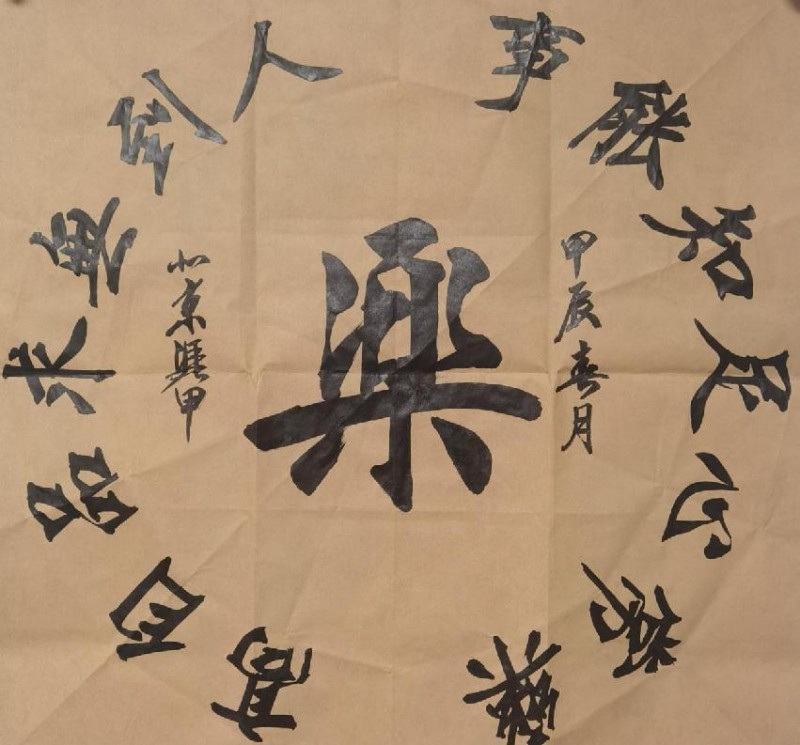 事能知足心常樂
人到無求品自高
楽
甲辰春月
北京甲